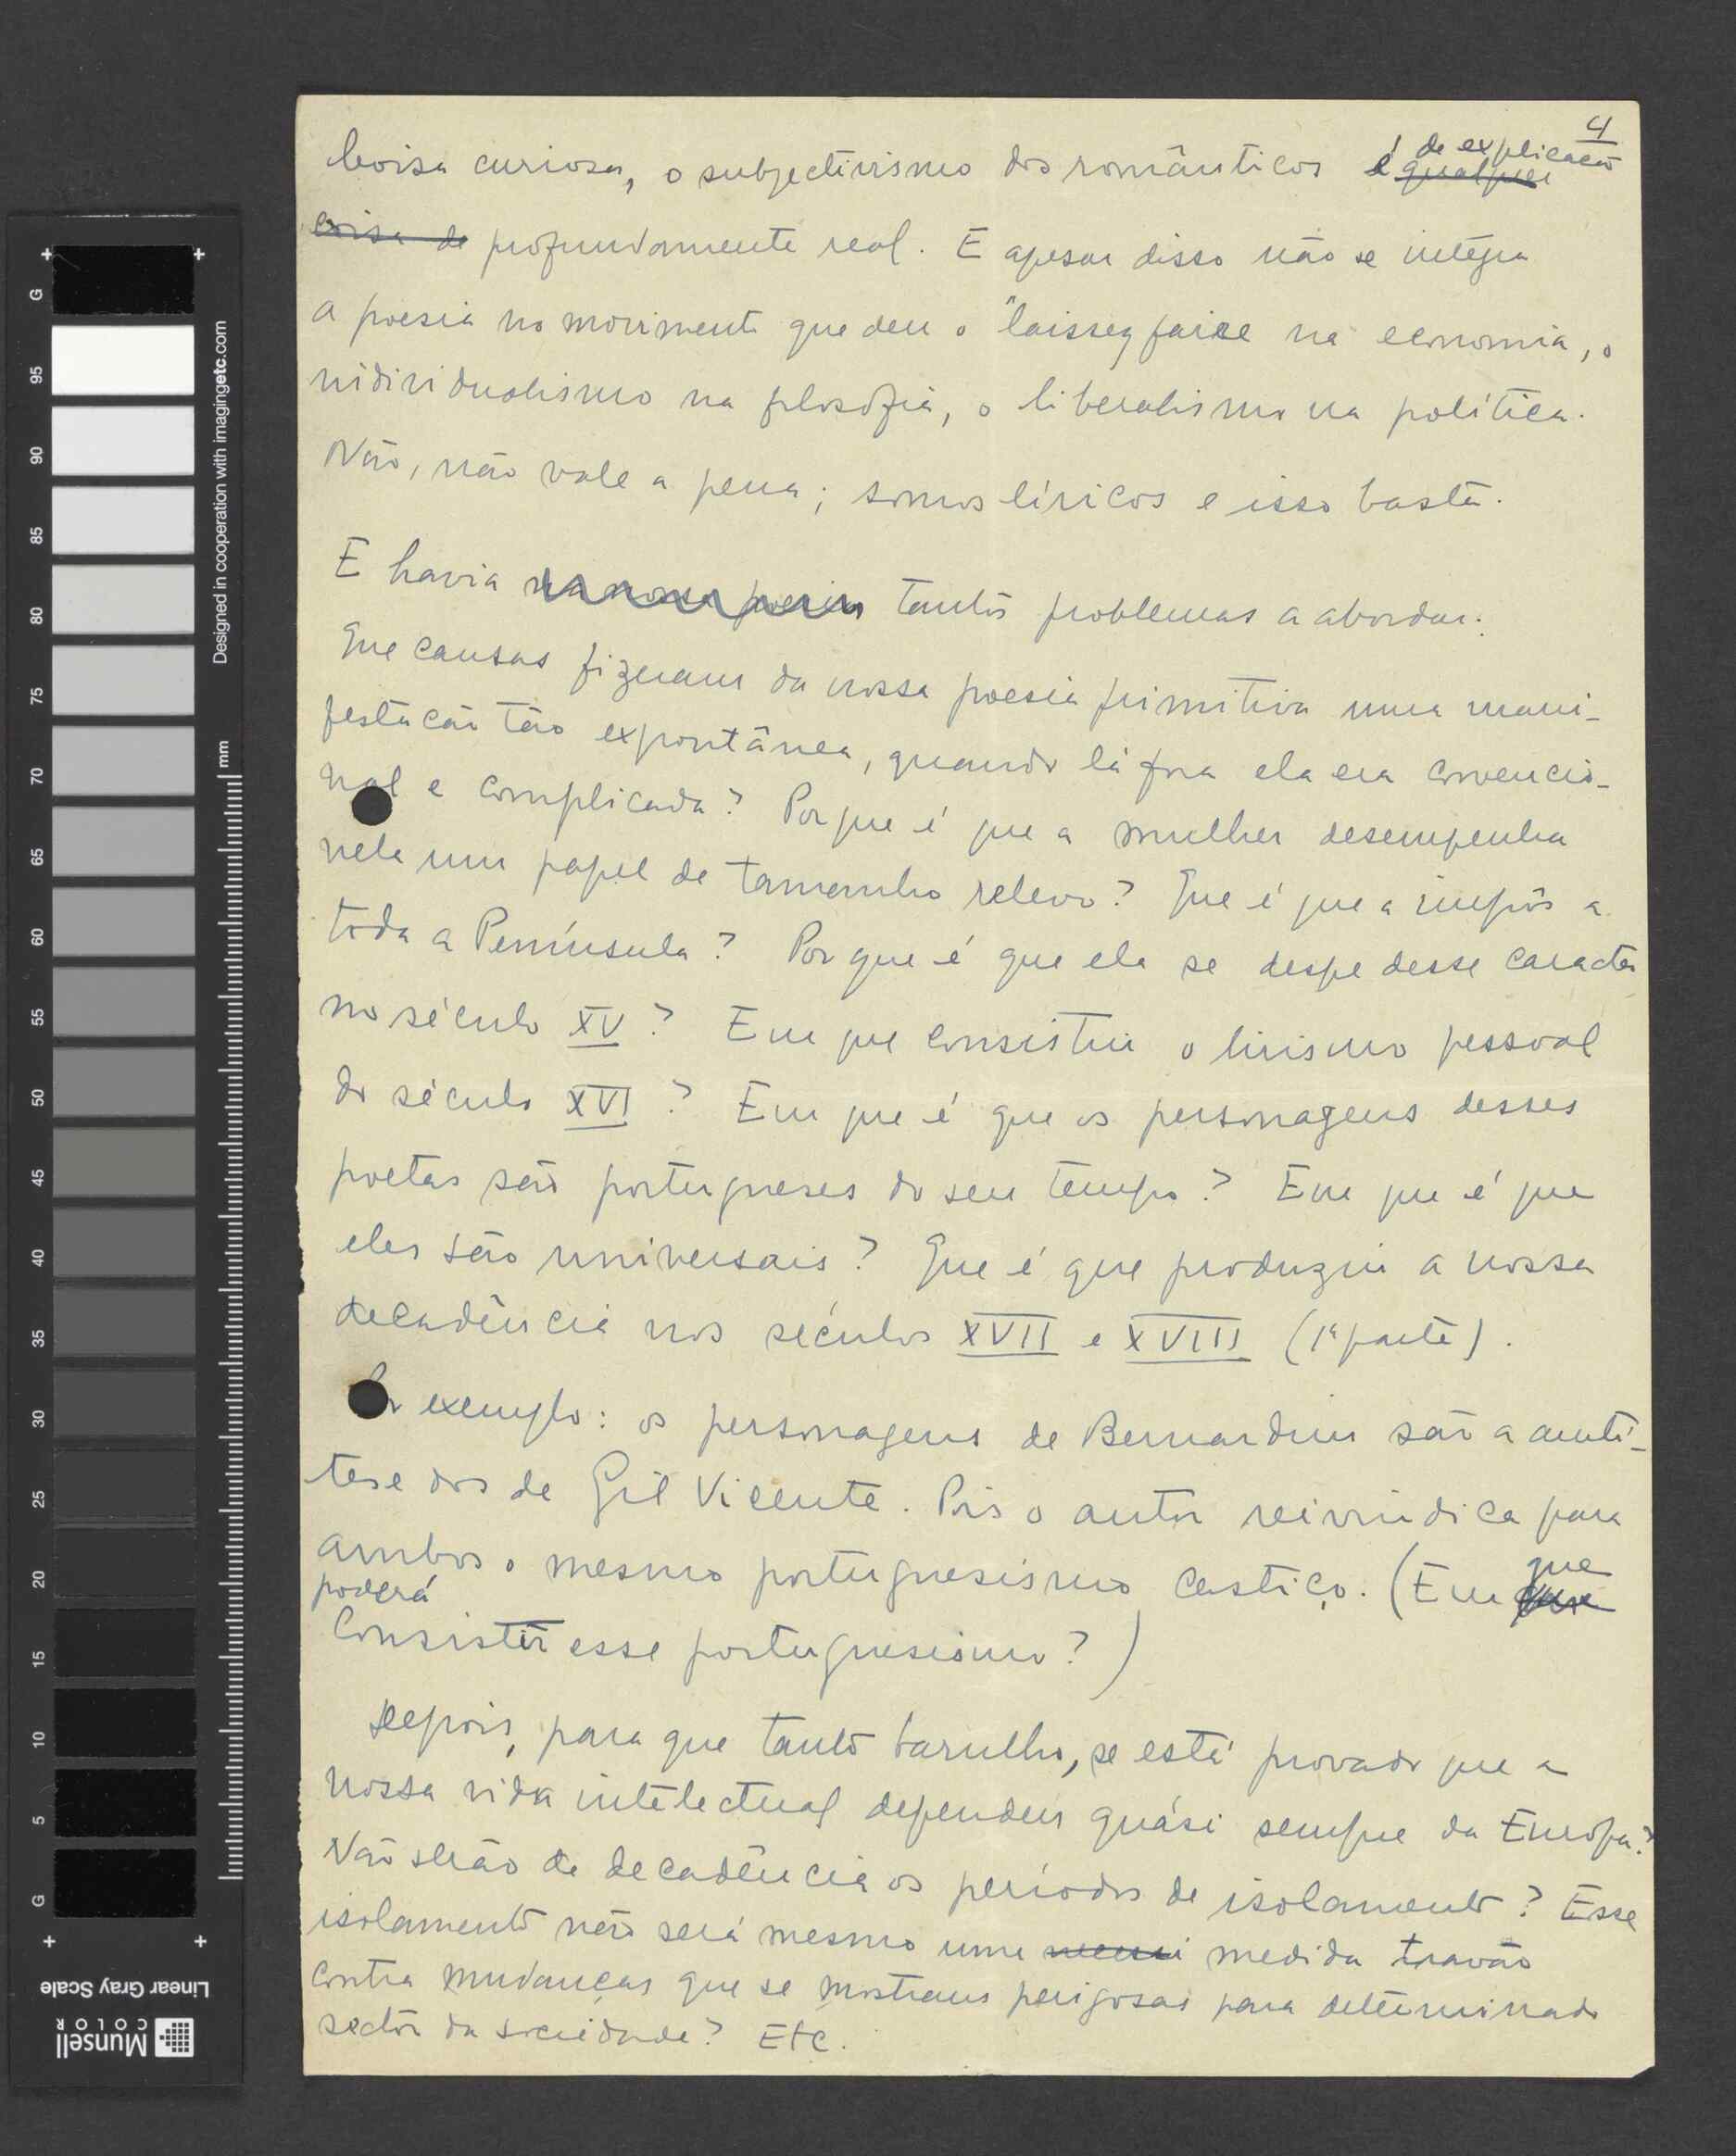 4
Coisa curiosa, o subjectivismo dos românticos é de explicação
qualquer
coisa de profundamente real. E apesar disso não se integra
a poesia no movimento que deu o "laissez faire na economia, o
individualismo na filosofia, o liberalismo na política.
Não, não vale a pena; somos líricos e isso basta.
E havia na nossa poesia tantos problemas a abordar.
Que causas fizeram da nossa poesia primitiva uma mani-
festação tão expontânea, quando lá fora ela era convencio-
nal e complicada? Porque é que a mulher desempenha
nela um papel de tamanho relevo? Que é que a impôs a
toda a Península? Por que é que ela se despe desse caracter
no século XV? Em que consistiu o lirismo pessoal
do século XVI? Em que é que os personagens desses
poetas são portugueses do seu tempo? Em que é que
eles são universais? Que é que produziu a nossa
decadência nos séculos XVII e XVIII (1ª parte).
Por exemplo: os personagens de Bernardim são a antí-
tese dos de Gil Vicente. Pois o autor reivindica para
ambos o mesmo portuguesismo castiço. (Em que
poderá
consistir esse portuguesismo?)
Depois, para que tanto barulho, se está provado que a
nossa vida intelectual dependeu quási sempre da Europa?
Não serão de decadência os períodos de isolamento? Esse
isolamento não será mesmo uma medida travão
contra mudanças que se mostram perigosas para determinado
sector da sociedade? Etc.
G
95
90
85
80
75
70
65
60
55
50
45
40
35
30
25
20
15
10
5
G
mm
Designed in cooperation with imagingetc.com
Linear Gray Scale
Munsell
COLOR